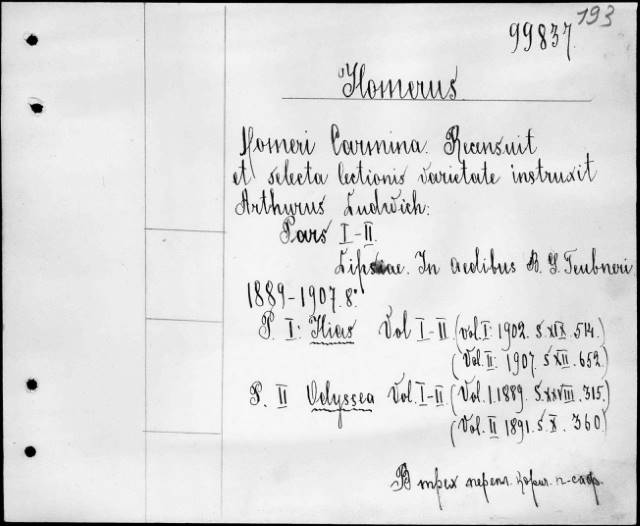 193
99837.
Homerus
Homeri Carmina. Recensuit
et selecta lectionis varietate instruxit
Arthurus Ludwich:
Pars I-II.
Lipsiae. In aedibus B. G. Teubneri
1889-1907. 8°.
P. I: Ilias Vol I-II. (Vol. I. 1902. S XIX. 514.)
(Vol. II. 1907. S XII. 652.)
P. II Odyssea Vol. I-II. (Vol. I. 1889. S. XXVIII. 315.)
(Vol. II 1891. S. X. 360)
В трех перепл. корш. п-сафр.